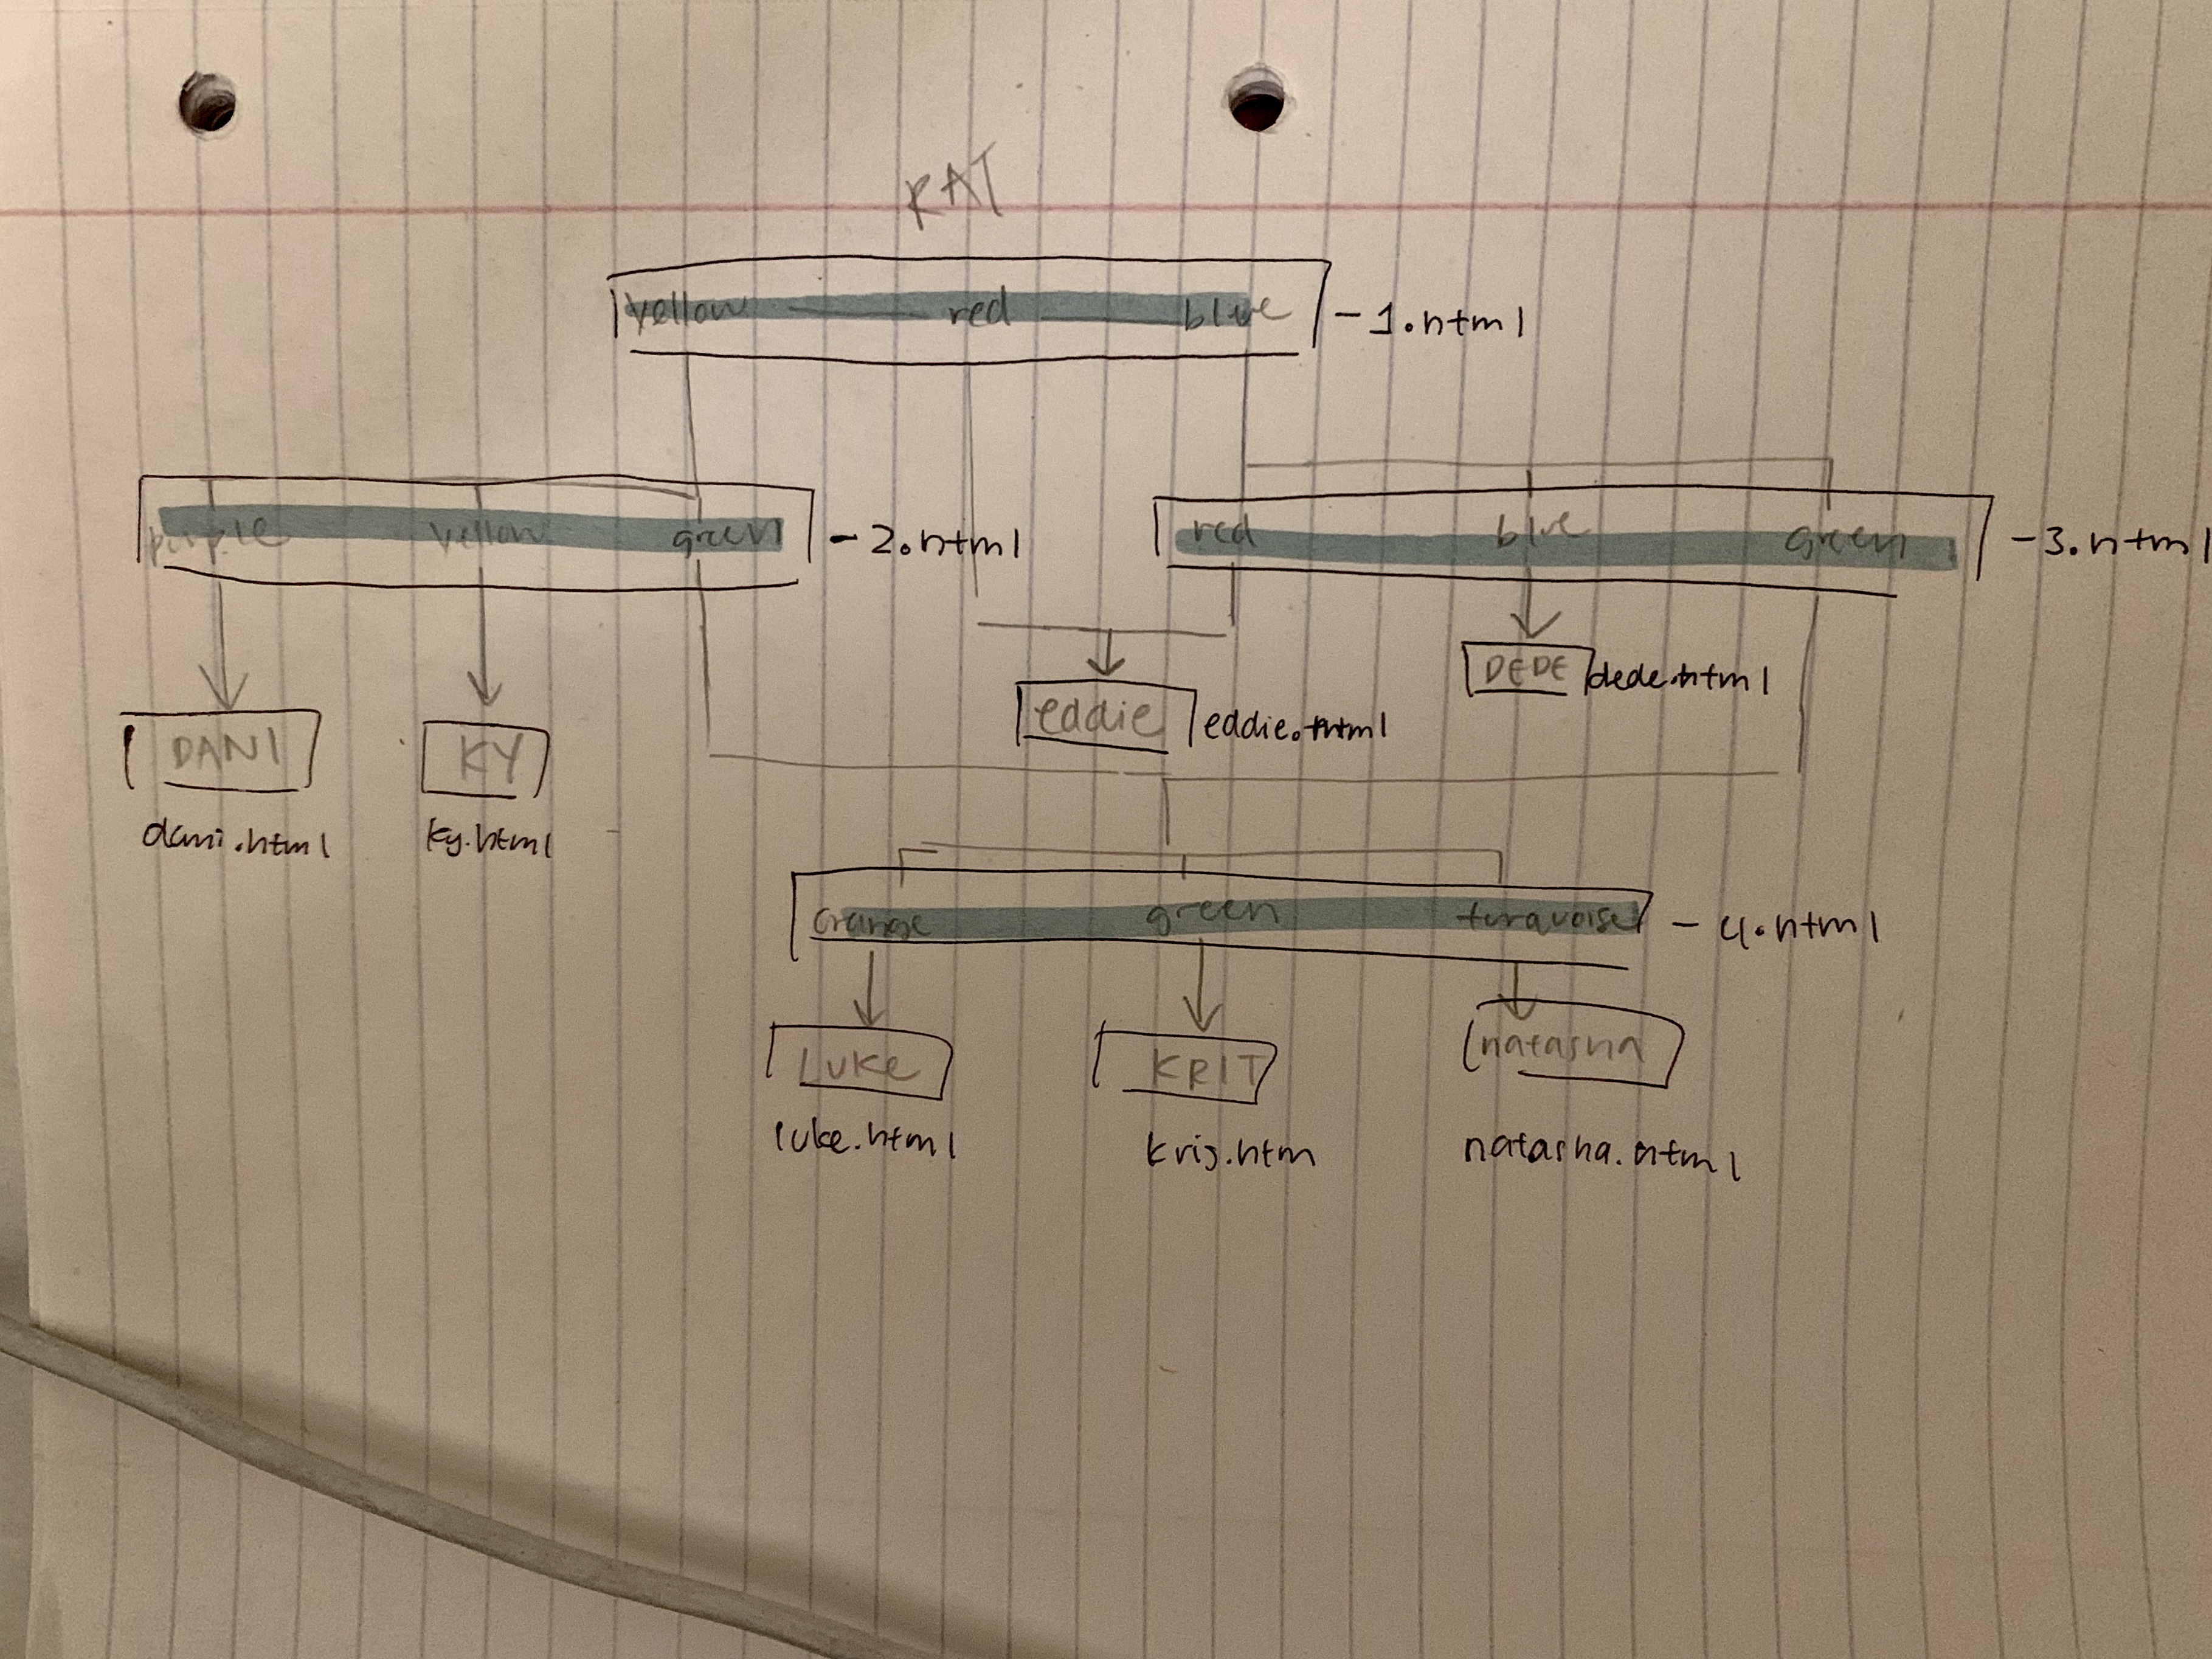 KAT
yellow red blue -1.html
purple yellow green -2.html
red blue green -3.html
DEDE dede.html
eddie eddie.html
DANI KY
dani.html ky.html
orange green turquoise -4.html
LUKE KRIT natasha
luke.html kris.htm natasha.html